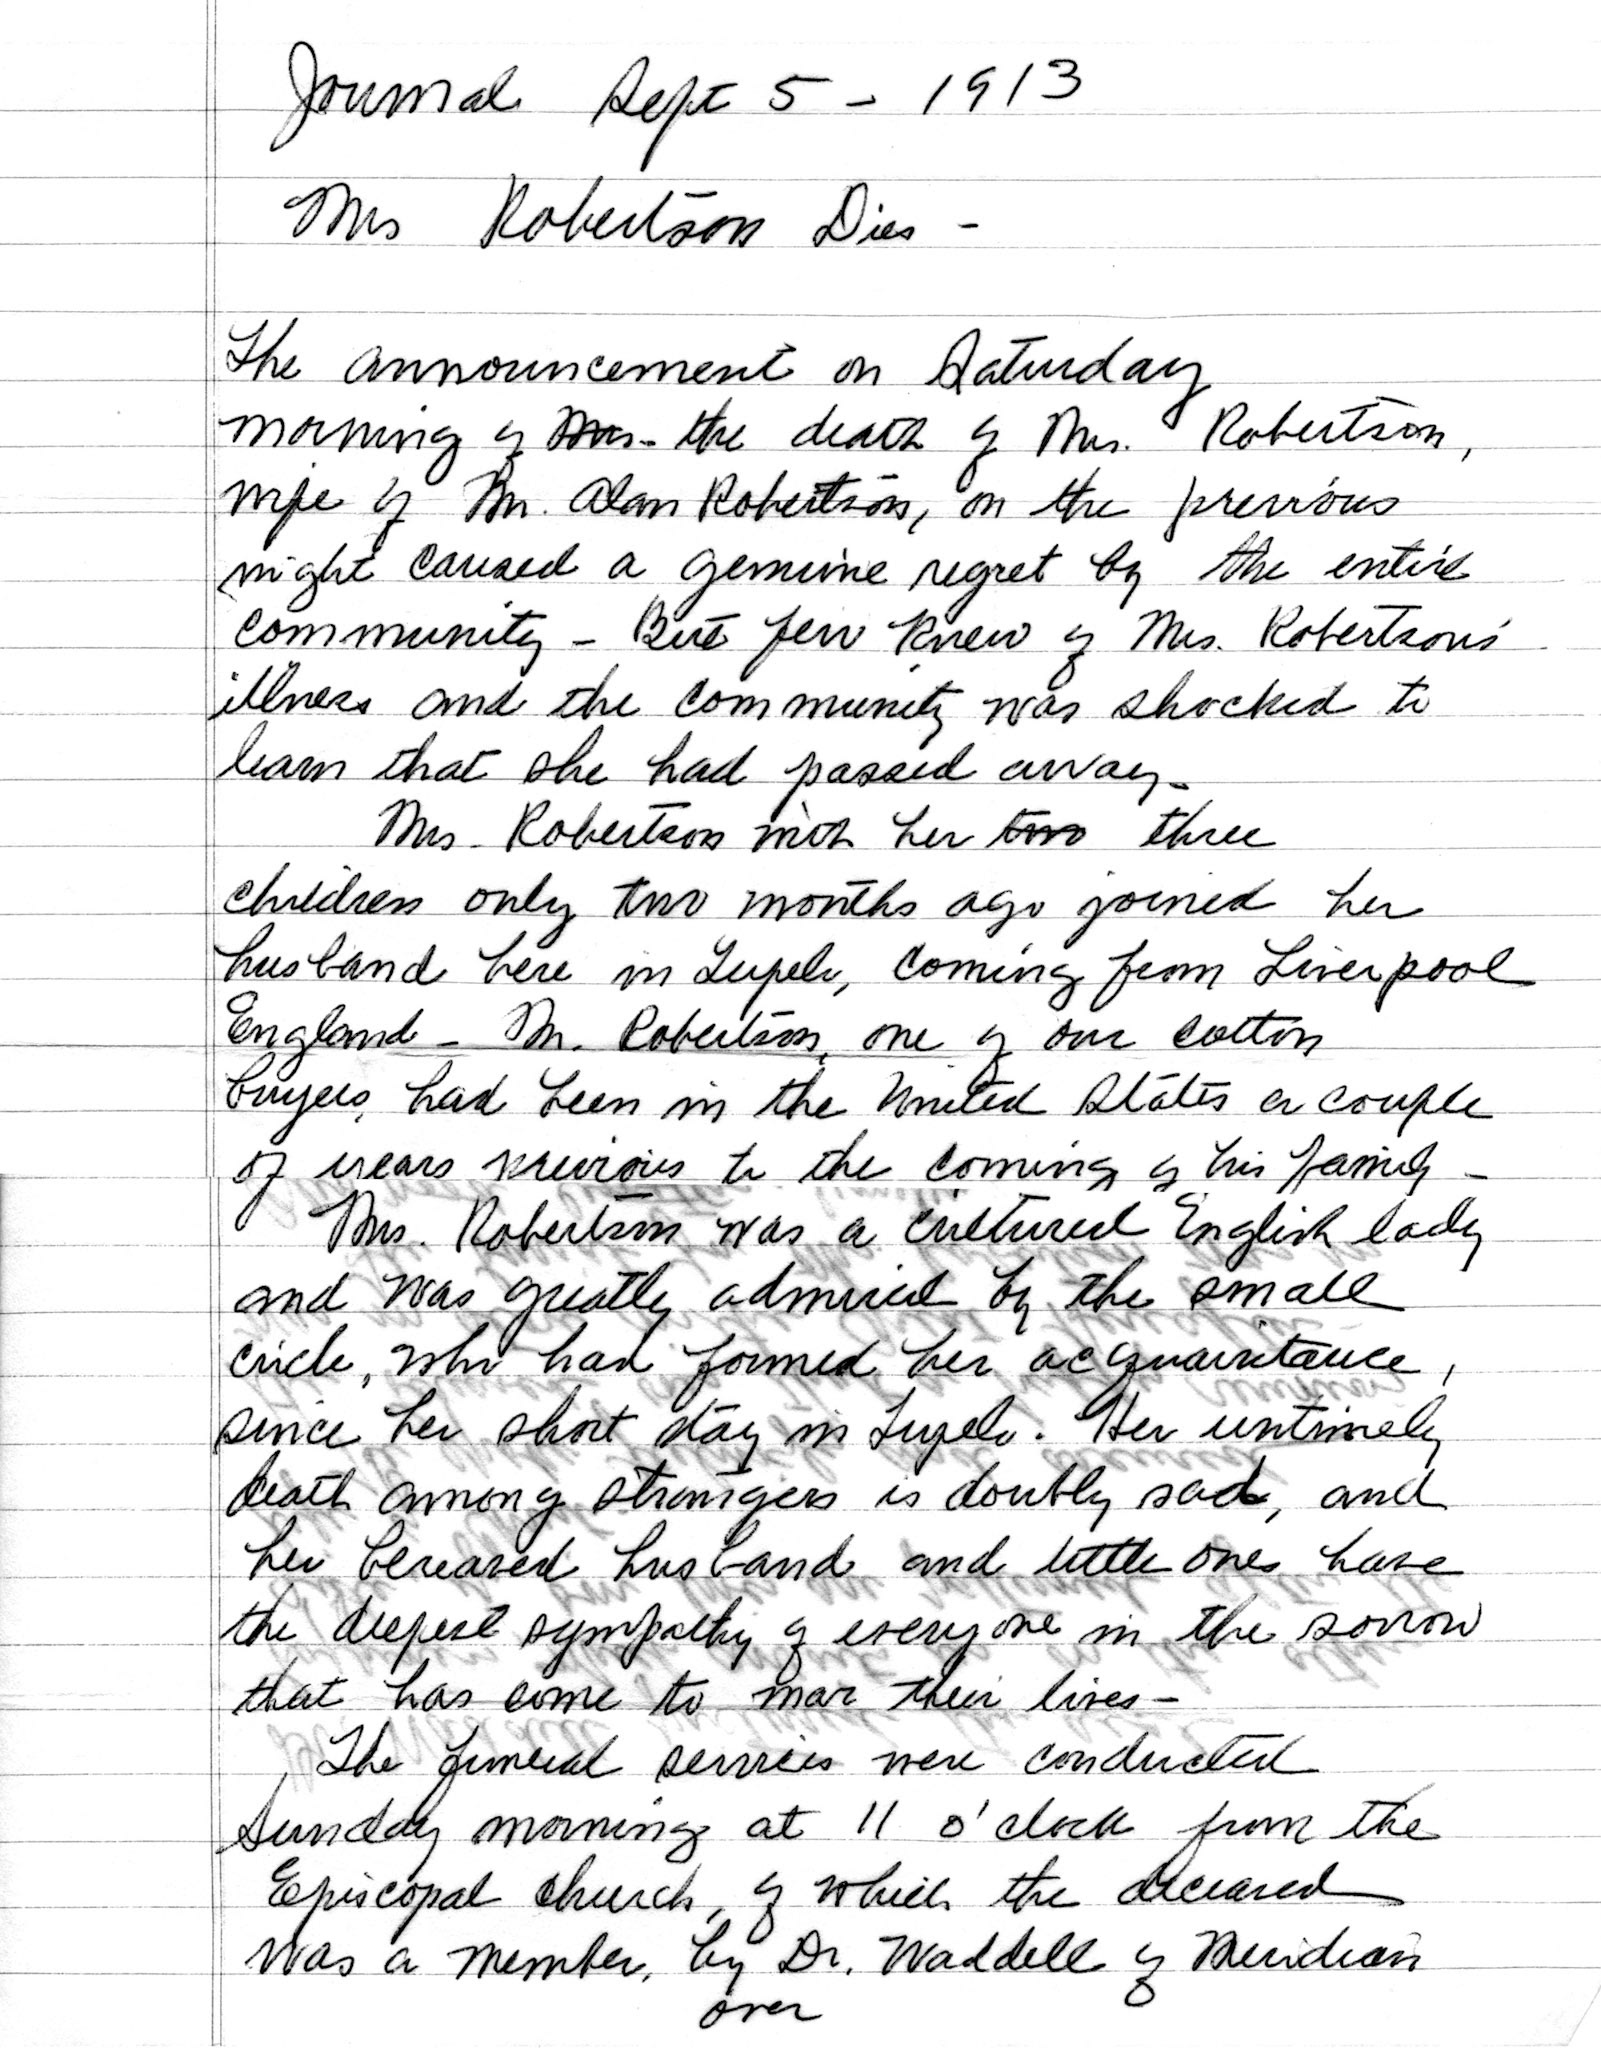 Journal Sept 5 - 1913
Mrs Robertson Dies -
The announcement on Saturday
morning of Mrs. the death of Mrs. Robertson,
wife of Mr. Alan Robertson, on the previous
night caused a genuine regret by the entire
community - But few knew of Mrs. Robertson's
illness and the community was shocked to
learn that she had passed away -
Mrs. Robertson with her two three
children only two months ago joined her
husband here in Tupelo, coming from Liverpool
England - Mr. Robertson, one of our cotton
buyers, had been in the United States a couple
of years previous to the coming of his family -
Mrs. Robertson was a cultured English lady
and was greatly admired by the small
circle, who had formed her acquaintance,
since her short stay in Tupelo. Her untimely
death among strangers is doubly sad, and
her bereaved husband and little ones have
the deepest sympathy of everyone in the sorrow
that has come to mar their lives -
The funeral services were conducted
Sunday morning at 11 o'clock from the
Episcopal church, of which the deceased
was a member, by Dr. Waddell of Meridian
over